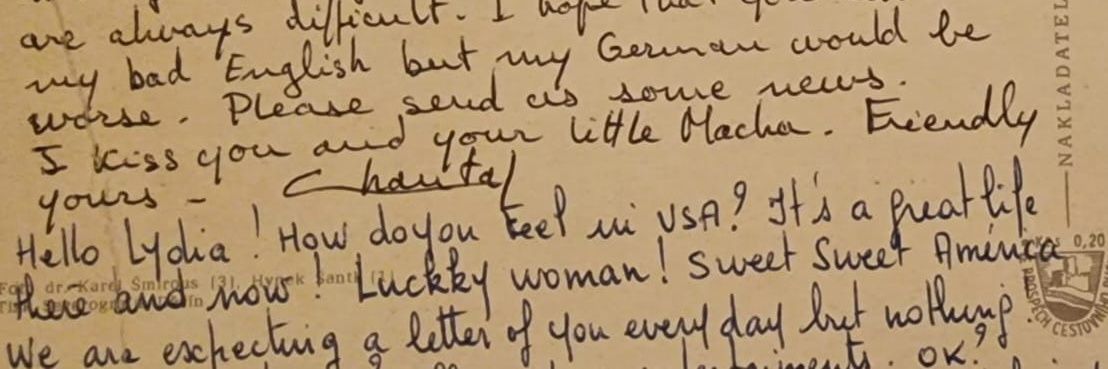 are always difficult. I hope that you
my bad English but my German would be
worse. Please send us some news.
I kiss you and your little Macha. Friendly
yours - Chantal
Hello Lydia! How do you feel in USA? It's a great life
there and now! Luckky woman! Sweet Sweet América
We are expecting a letter of you every day but nothing.
OK?
NAKLADATEL
Kčs 0,20
Foto dr. Karel Šmirous (3), Hynek Šantl (1)